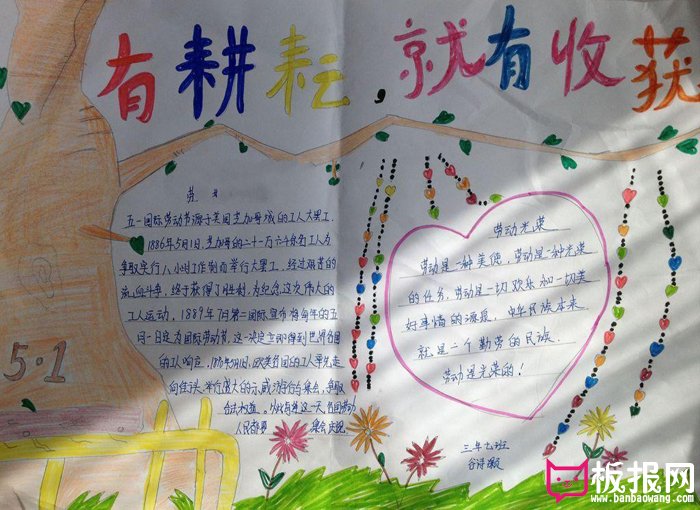 有耕耘，就有收获
5·1
五一国际劳动节源于美国芝加哥城的工人大罢工，
1886年5月1日，芝加哥的二十一万六千余名工人为
争取实行八小时工作制而举行大罢工，经过艰苦的
流血斗争，终于获得了胜利，为纪念这次伟大的
工人运动，1889年7月第二国际宣布将每年的五
月一日定为国际劳动节，这一决定立即得到世界各国
的工人响应，1890年5月1日，欧美各国的工人率先走
向街头，举行盛大的示威游行与集会，争取
合法权益。从此每逢这一天，各国劳动
人民都要 集会庆祝
劳动光荣
劳动是一种美德，劳动是一种光荣
的任务，劳动是一切欢乐和一切美
好事情的源泉，中华民族本来
就是一个勤劳的民族，
劳动是光荣的！
三年七班
板报网
www.banbaowang.com